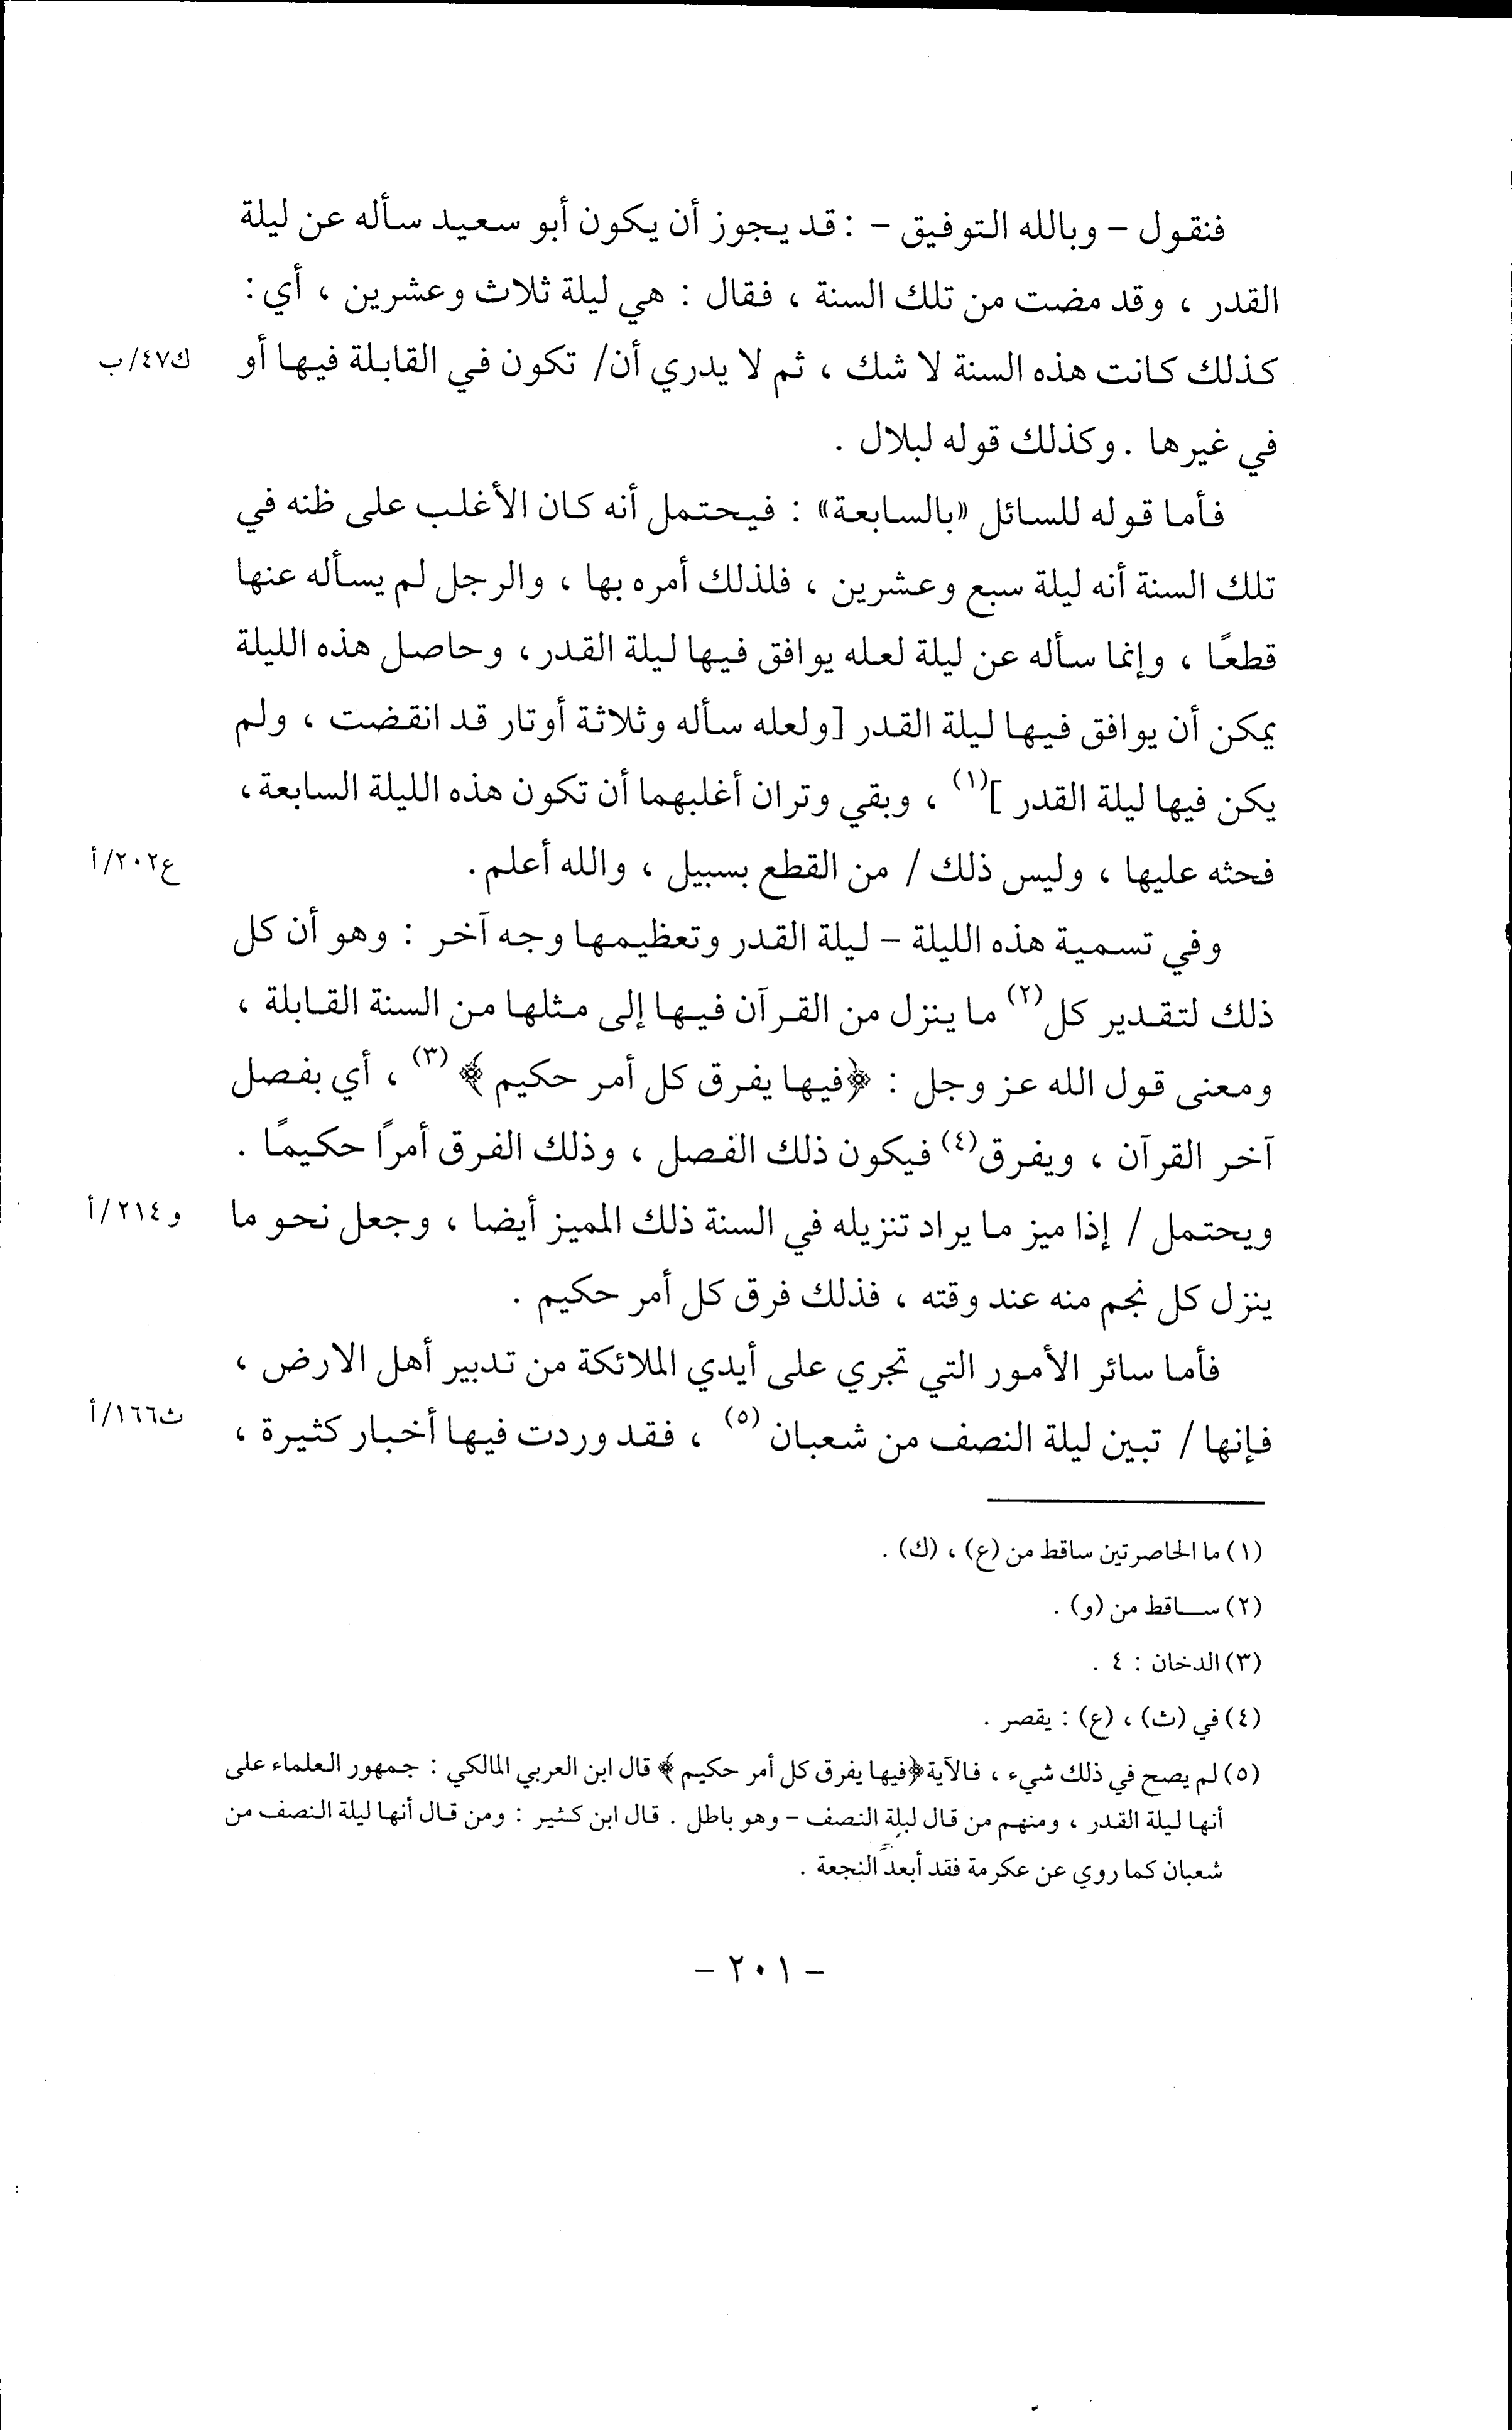 فنقول – وبالله التوفيق – : قد يجوز أن يكون أبو سعيد سأله عن ليلة
القدر ، وقد مضت من تلك السنة ، فقال : هي ليلة ثلاث وعشرين ، أي :
كذلك كانت هذه السنة لا شك ، ثم لا يدري أن/ تكون في القابلة فيها أو
ك٤٧/ب
في غيرها . وكذلك قوله لبلال .
فأما قوله للسائل «بالسابعة» : فيحتمل أنه كان الأغلب على ظنه في
تلك السنة أنه ليلة سبع وعشرين ، فلذلك أمره بها ، والرجل لم يسأله عنها
قطعًا ، وإنما سأله عن ليلة لعله يوافق فيها ليلة القدر، وحاصل هذه الليلة
يمكن أن يوافق فيها ليلة القدر [ولعله سأله وثلاثة أوتار قد انقضت ، ولم
يكن فيها ليلة القدر ](١) ، وبقي وتران أغلبهما أن تكون هذه الليلة السابعة،
فحثه عليها ، وليس ذلك / من القطع بسبيل ، والله أعلم.
ع٢٠٢/أ
وفي تسمية هذه الليلة – ليلة القدر وتعظيمها وجه آخر : وهو أن كل
ذلك لتقدير كل(٢) ما ينزل من القرآن فيها إلى مثلها من السنة القابلة ،
ومعنى قول الله عز وجل : ﴿فيها يفرق كل أمر حكيم ﴾ (٣) ، أي بفصل
آخر القرآن ، ويفرق(٤) فيكون ذلك الفصل ، وذلك الفرق أمرًا حكيمًا .
ويحتمل / إذا ميز ما يراد تنزيله في السنة ذلك المميز أيضا ، وجعل نحو ما
و٢١٤/أ
ينزل كل نجم منه عند وقته ، فذلك فرق كل أمر حكيم .
فأما سائر الأمور التي تجري على أيدي الملائكة من تدبير أهل الارض ،
فإنها / تبين ليلة النصف من شعبان (٥) ، فقد وردت فيها أخبار كثيرة ،
ث١٦٦/أ
(١) ما الحاصرتين ساقط من (ع) ، (ك) .
(٢) ســاقط من (و) .
(٣) الدخان : ٤ .
(٤) في (ث) ، (ع) : يقصر .
(٥) لم يصح في ذلك شيء ، فالآية ﴿فيها يفرق كل أمر حكيم ﴾ قال ابن العربي المالكي : جمهور العلماء على
أنها ليلة القدر ، ومنهم من قال ليلة النصف – وهو باطل . قال ابن كثير : ومن قال أنها ليلة النصف من
شعبان كما روي عن عكرمة فقد أبعد النجعة .
– ٢٠١ –